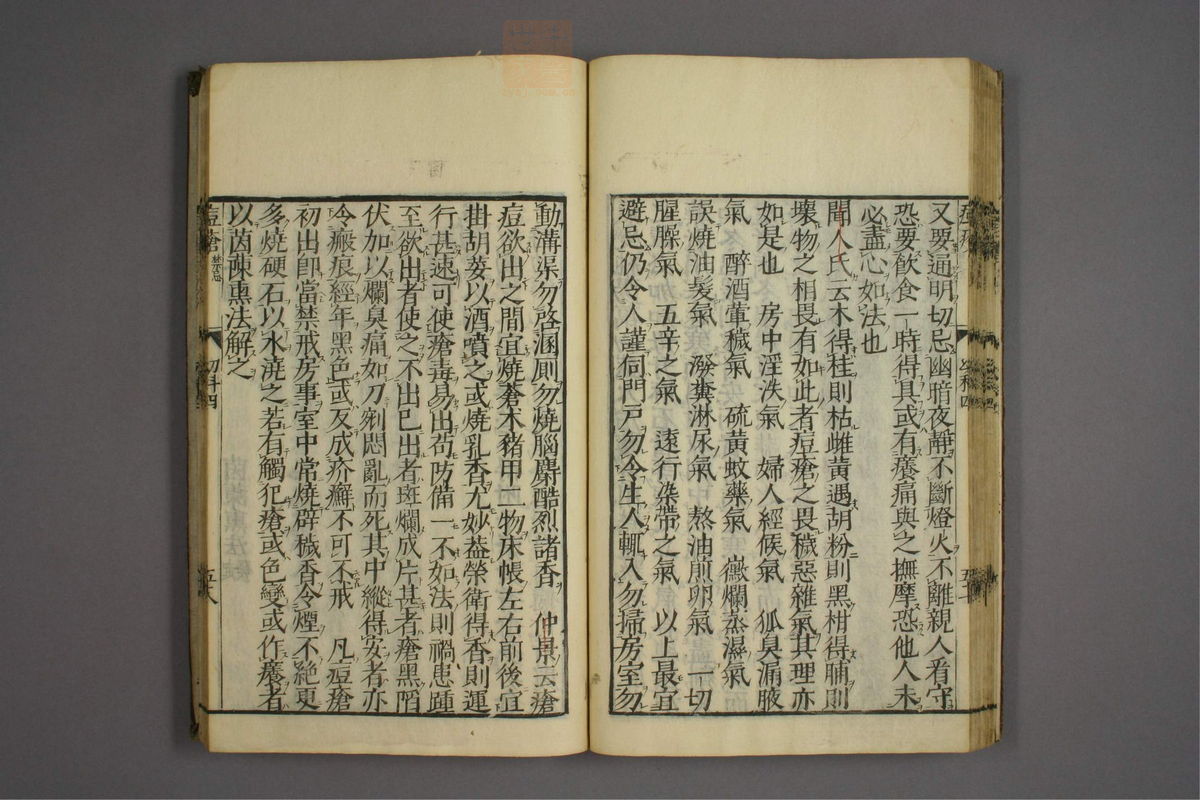 又要通明切忌幽暗夜靜不斷燈火不離親人看守
恐要飲食一時得具或有癢痛與之撫摩恐他人未
必盡心如法也
聞人氏云木得桂則枯雌黃遇胡粉則黑柑得脯則
壞物之相畏有如此者痘瘡之畏穢惡雜氣其理亦
如是也 房中淫泆氣 婦人經候氣 狐臭漏腋
氣 醉酒葷穢氣 硫黃蚊藥氣 黴爛蒸濕氣
誤燒油髮氣 潑糞淋尿氣 熬油煎卵氣 一切
腥臊氣 五辛之氣 遠行染帶之氣 以上最宜
避忌仍令人謹伺門戶勿令生人輒入勿掃房室勿
動溝渠勿啓溷厠勿燒腦麝酷烈諸香 仲景云瘡
痘欲出之間宜燒蒼朮豬甲二物床帳左右前後宜
掛胡荽以酒噴之或燒乳香尤妙葢榮衛得香則運
行甚速可使瘡毒易出茍防備一不如法則禍患踵
至欲出者使之不出已出者斑爛成片甚者瘡黑陷
伏加以爛臭痛如刀剜悶亂而死其中縱得安者亦
令瘢痕經年黑色或反成疥癬不可不戒 凡痘瘡
初出卽當禁戒房事室中常燒辟穢香令煙不絕更
多燒硬石以水澆之若有觸犯瘡或色變或作癢者
以茵陳熏法解之
痘瘡 禁忌 幼科四 五十八